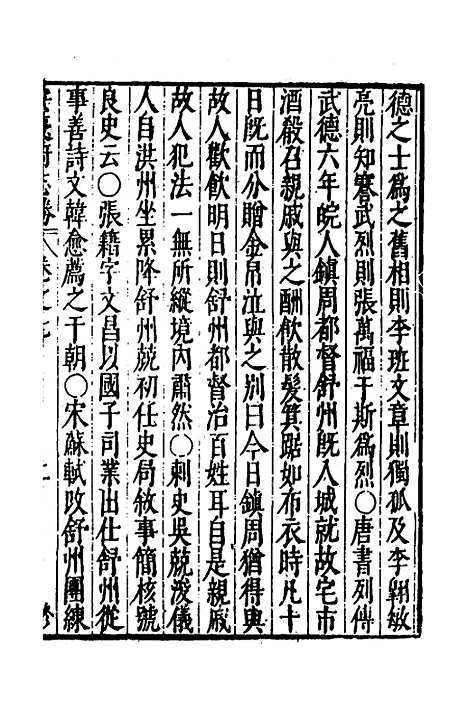 德之士為之舊相則李班文章則獨孤及李翱敏
亮則知謇武烈則張萬福于斯為烈〇唐書列傳
武德六年皖人鎮周都督舒州旣入城就故宅市
酒殺召親戚與之酣飲散髮箕踞如布衣時凡十
日旣而分贈金帛泣與之別曰今日鎮周猶得與
故人歡飲明日則舒州都督治百姓耳自是親戚
故人犯法一無所縱境內肅然〇刺史吳兢浚儀
人自洪州坐累降舒州兢初任史局敘事簡核號
良史云〇張籍字文昌以國子司業出仕舒州從
事善詩文韓愈薦之于朝〇宋蘇軾改舒州團練
志勝 卷之七